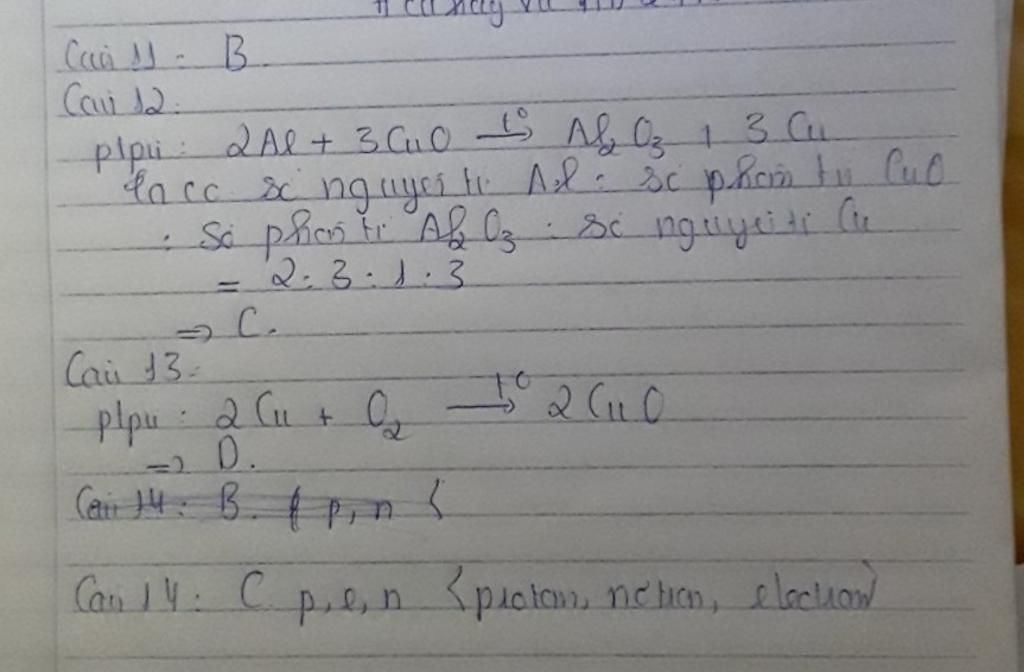 Câu 11: B.
Câu 12:
ptpư: 2Al + 3CuO —t°→ Al₂O₃ + 3Cu
Ta có số nguyên tử Al : số phân tử CuO
: Số phân tử Al₂O₃ : số nguyên tử Cu
= 2:3:1:3
⇒ C.
Câu 13:
ptpư: 2Cu + O₂ —t°→ 2CuO
⇒ D.
Câu 14: B. ( p, n (
Câu 14: C. p, e, n (proton, nơtron, electron)